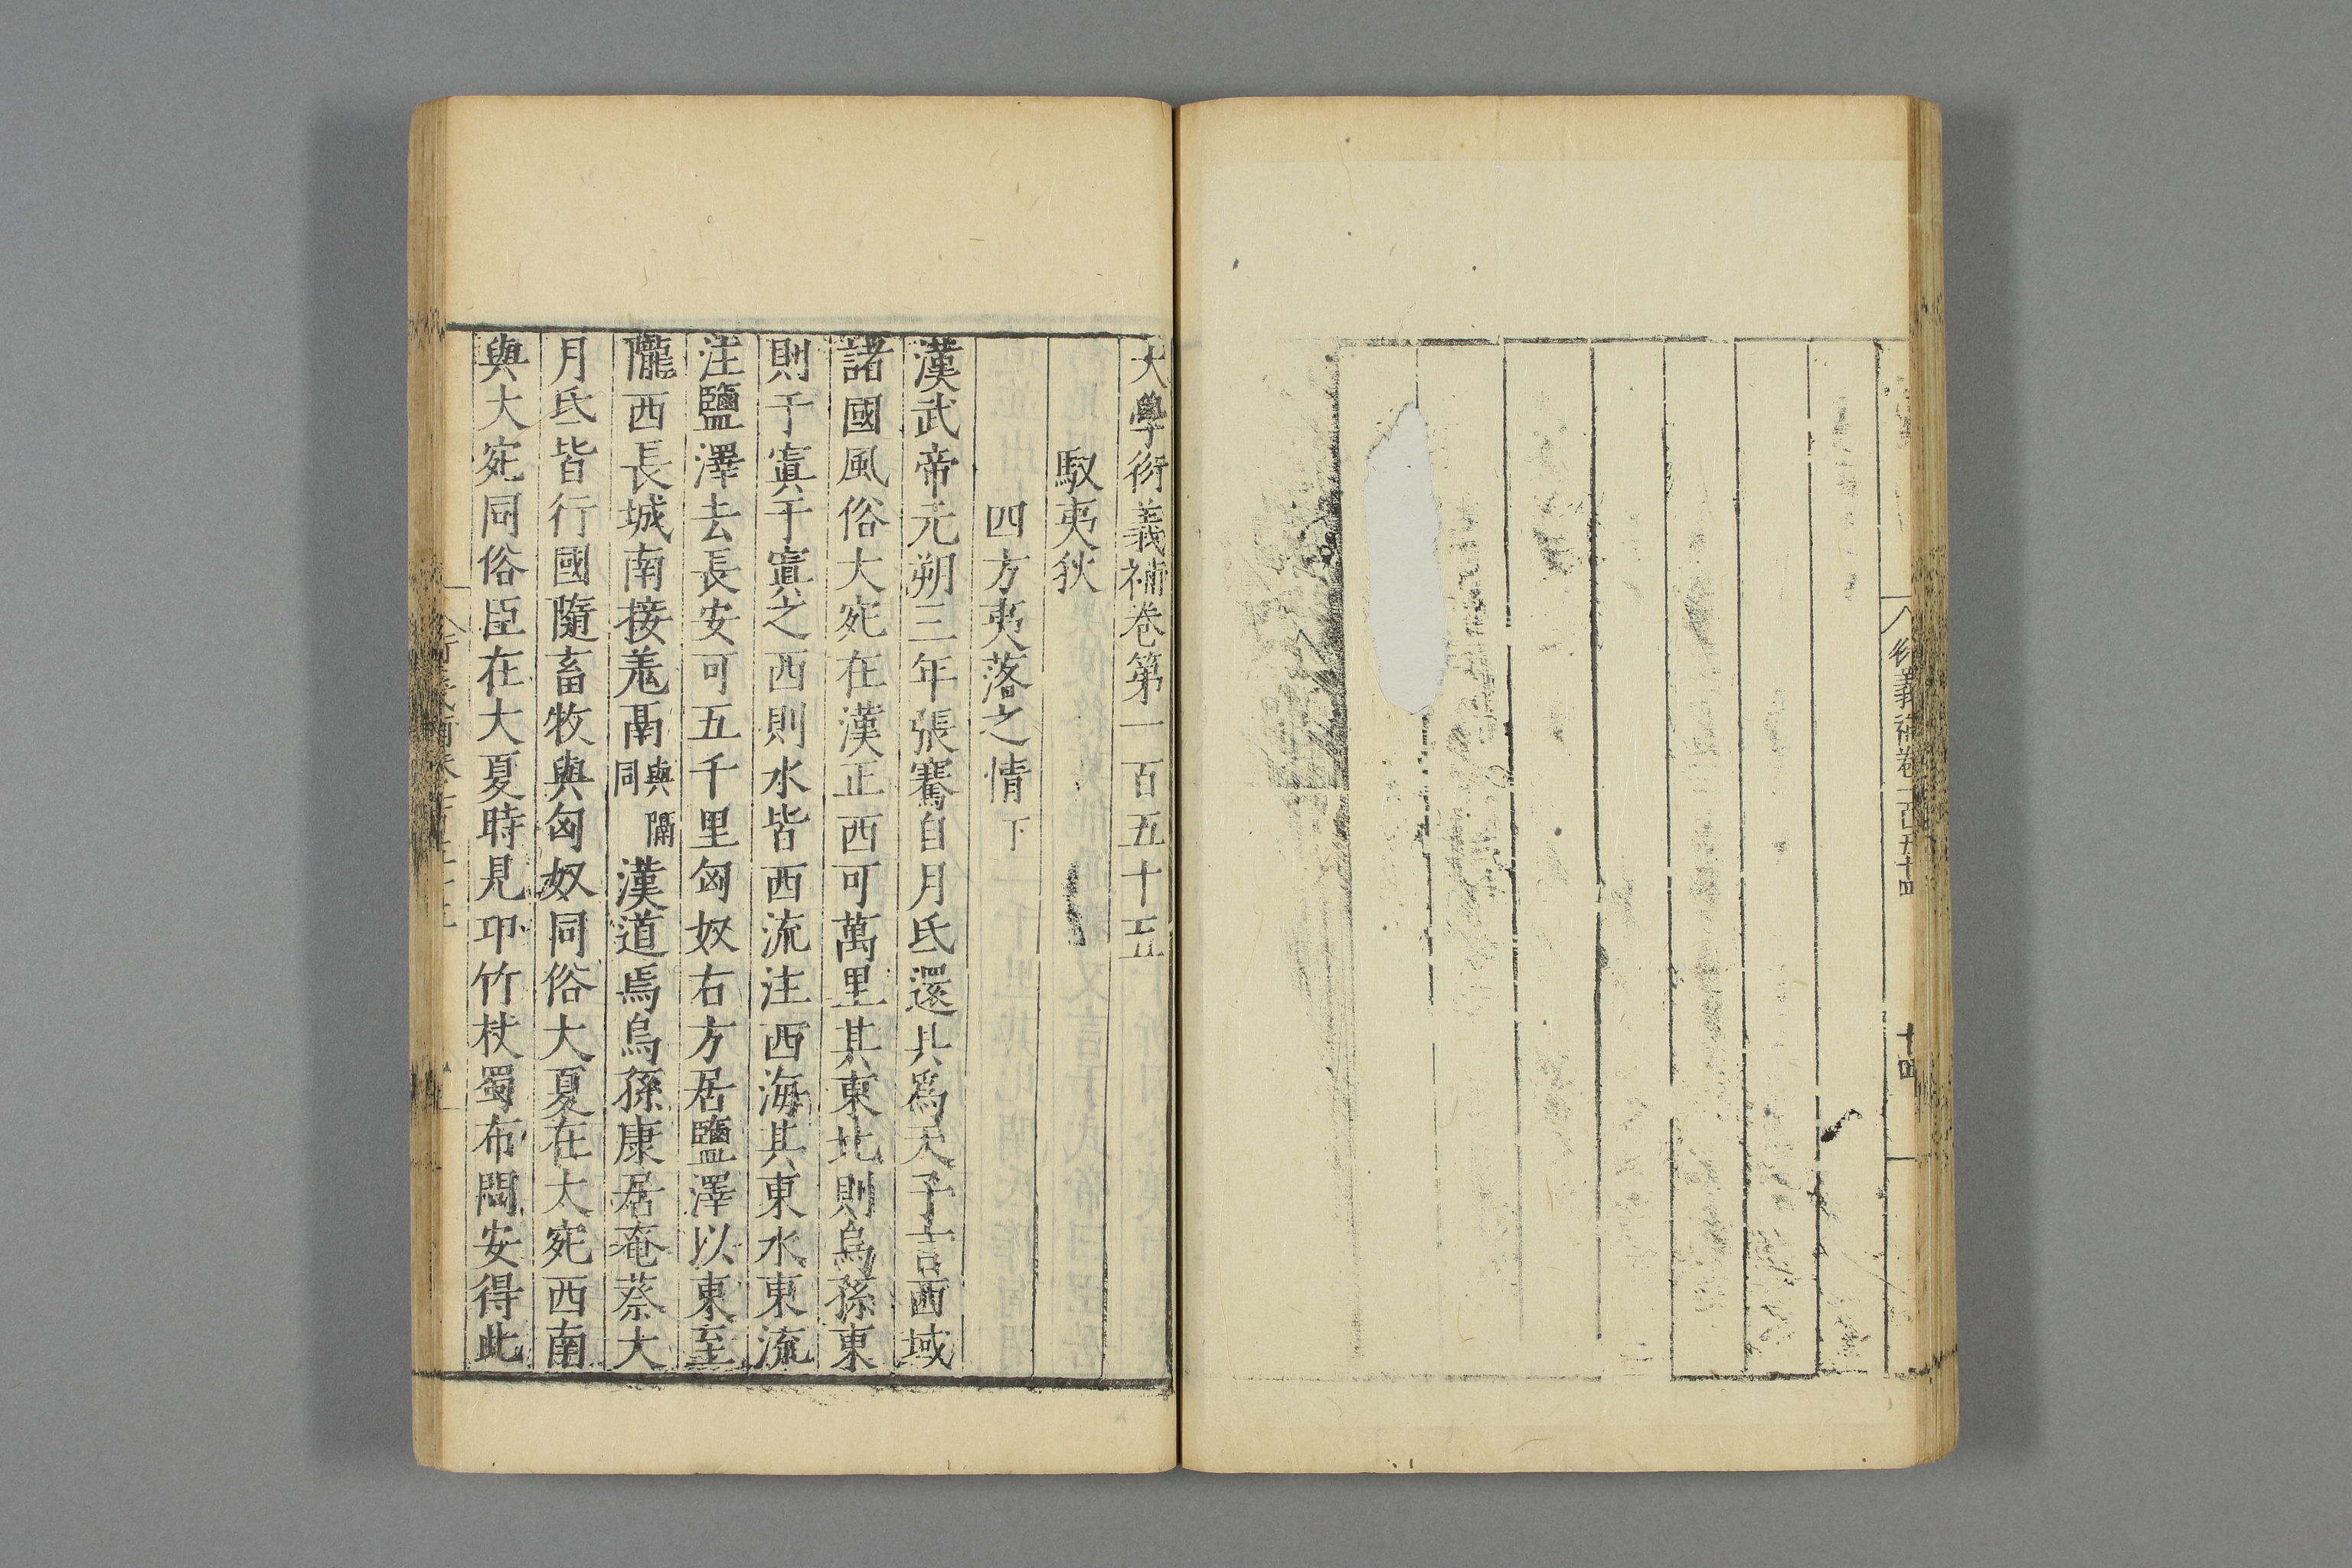 衍義補卷一百五十四
十四
大學衍義補卷第一百五十五
馭夷狄
四方夷落之情下
漢武帝元朔三年張騫自月氏還具爲天子言西域
諸國風俗大宛在漢正西可萬里其東北則烏孫東
則于窴于窴之西則水皆西流注西海其東水東流
注鹽澤去長安可五千里匈奴右方居鹽澤以東至
隴西長城南接羗鬲與隔同漢道焉烏孫康居奄蔡大
月氏皆行國隨畜牧與匈奴同俗大夏在大宛西南
與大宛同俗臣在大夏時見卭竹杖蜀布問安得此